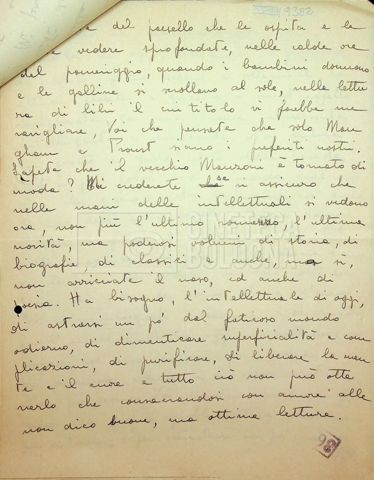 9302
del paesello che le ospita e le
vedere sprofondate, nelle calde ore
del pomeriggio, quando i bambini dormono
e le galline si crollano al sole, nella lettu
ra di libri il cui titolo vi farebbe me
ravigliare, Voi che pensate che solo Mau
gham e Proust siano i preferiti nostri.
Sapete che il vecchio Manzoni è tornato di
moda? Mi crederete se vi assicuro che
nelle mani delle intellettuali si vedono
ora, non più l'ultimo romanzo, l'ultima
novità, ma poderosi volumi di storia, di
biografie, di classici e anche, ma sì,
non arricciate il naso, ed anche di
poesia. Ha bisogno, l'intellettuale di oggi,
di astrarsi un po' dal faticoso mondo
odierno, di dimenticare superficialità e com
plicazioni, di purificare, di liberare la men
te e il cuore e tutto ciò non può otte
nerlo che consacrandosi con amore alle
non dico buone, ma ottime letture.
98